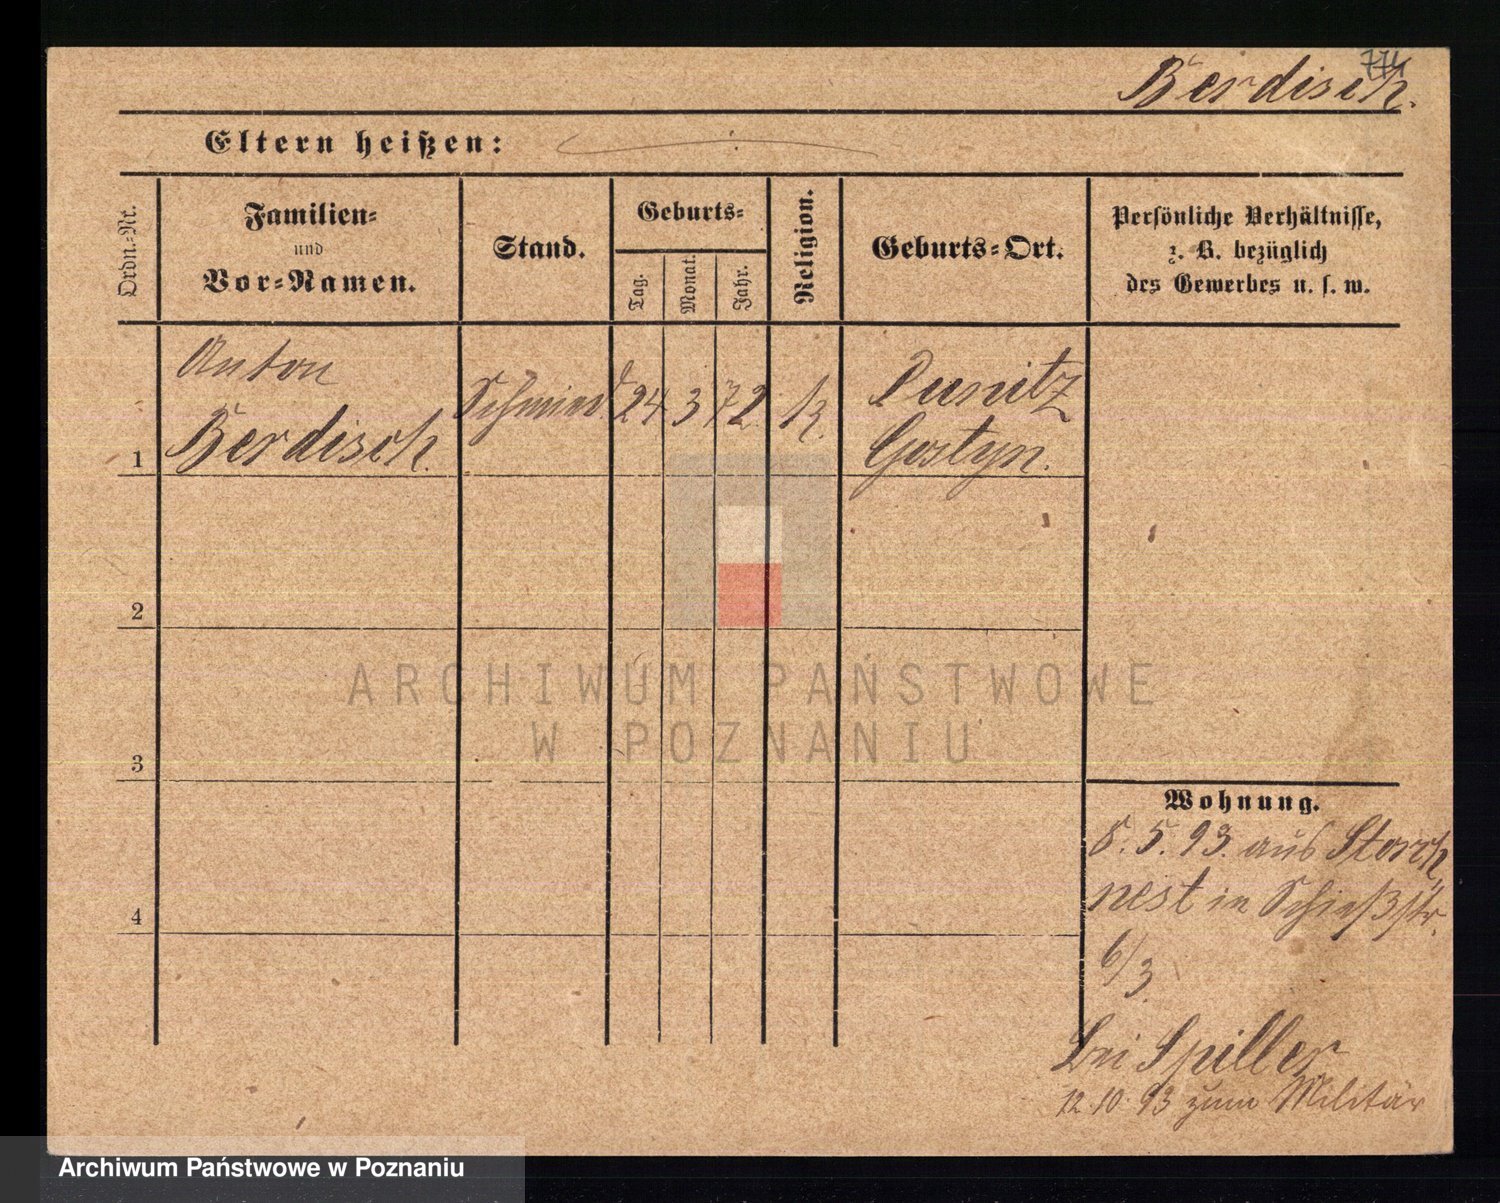 774
Berdisch.
Eltern heißen:
Ordn.-Nr.
Familien-
und
Vor-Namen.
Stand.
Geburts-
Tag.
Monat.
Jahr.
Religion.
Geburts-Ort.
Persönliche Verhältnisse,
z. B. bezüglich
des Gewerbes u. s. w.
1
Anton
Berdisch.
Schmied
24
3
72
k.
Punitz
Gostyn.
2
3
4
ARCHIWUM PAŃSTWOWE
W POZNANIU
Wohnung.
5. 5. 93. aus Storch
nest in Schießstr.
6/3.
bei Spiller
12. 10. 93 zum Militär
Archiwum Państwowe w Poznaniu